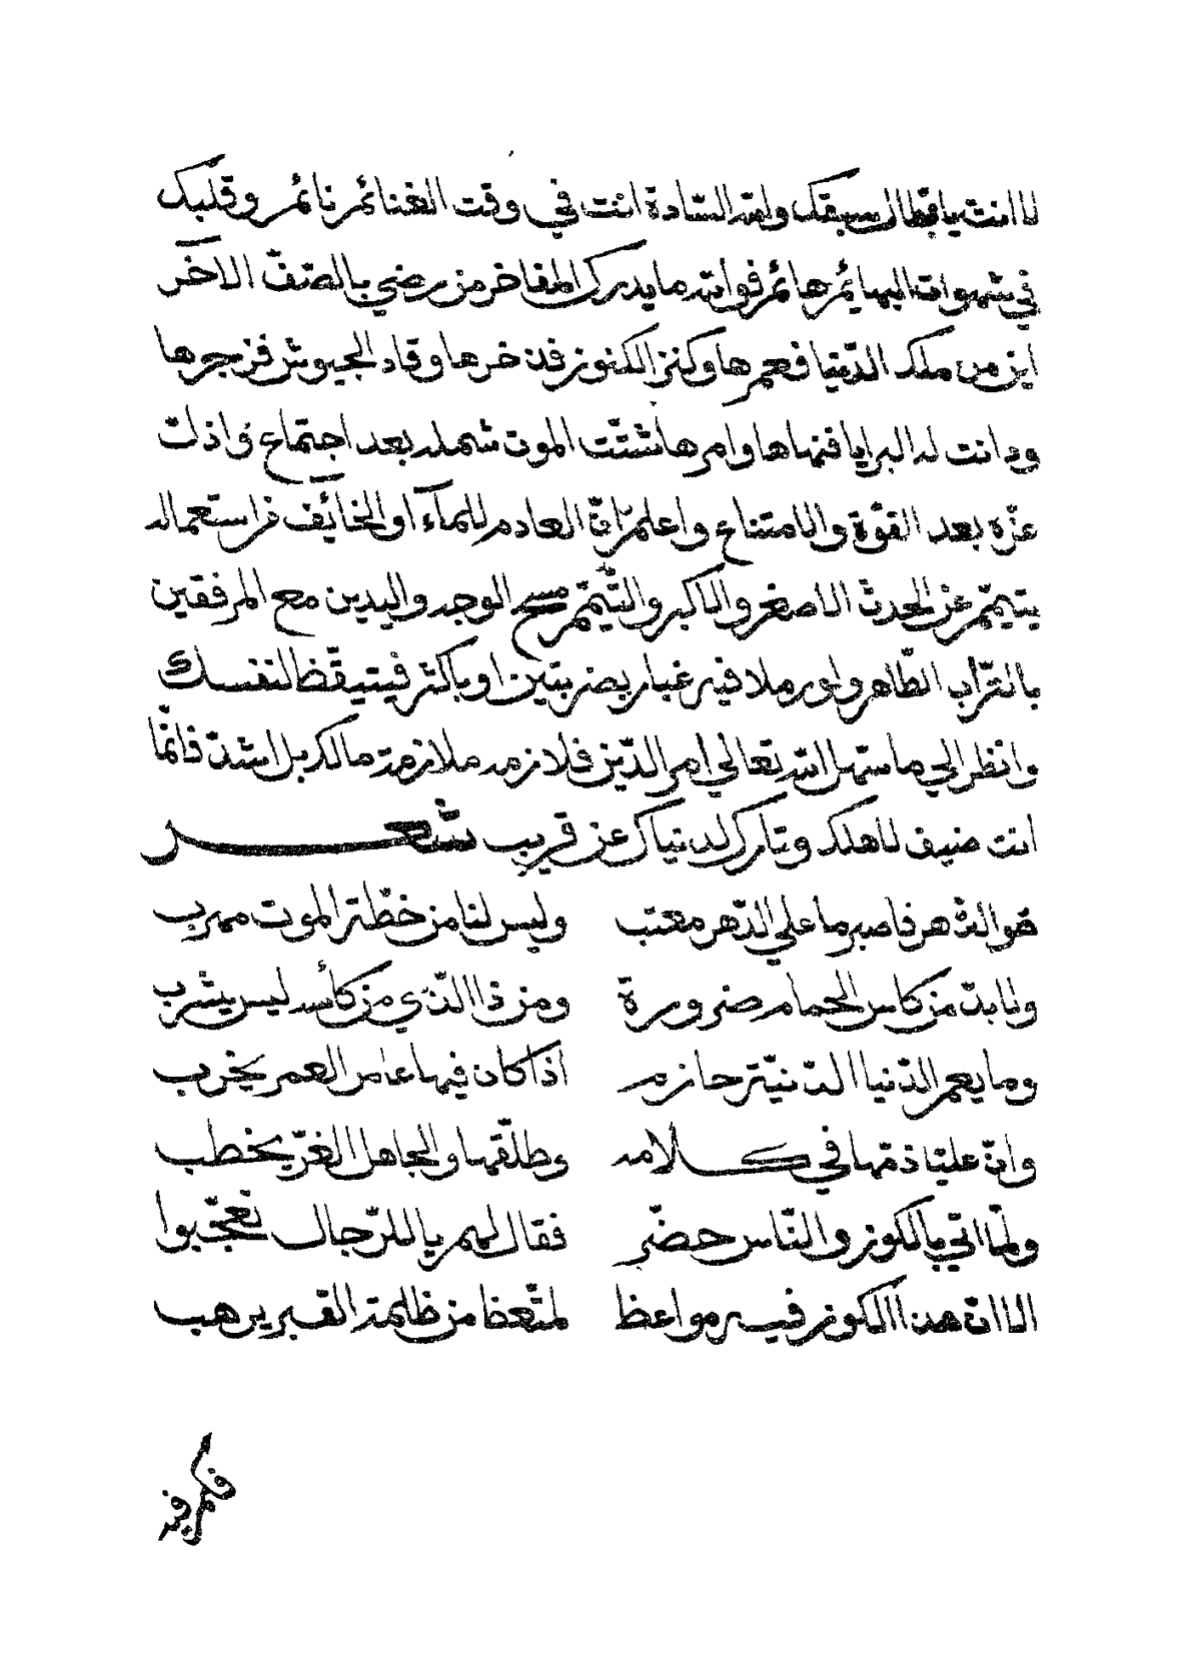 لا انت يا بطال سبقك والله السادة انت في وقت الغنائم نائم وقلبك
في شهوات البهائم هائم فوالله ما يدرك المفاخر من رضي بالصفّ الآخر
اين من ملك الدّنيا فعمرها وكنز الكنوز فذخرها وقاد الجيوش فزجرها
ودانت له البرايا فنهاها وامرها شتّت الموت شمله بعد اجتماع واذلّ
عزّه بعد القوّة والامتناع واعلم انّ العادم للمآء او الخائف من استعماله
يتيمّم عن الحدث الاصغر والاكبر والتّيمّم مسح الوجه واليدين مع المرفقين
بالتّراب الطّاهر ولو رملا فيه غبار بضربتين او باكثر فتيقّظ لنفسك
وانظر الي ما سهل الله تعالي امر الدّين فلازمه ملازمة مالك بل اشدّ فانّما
انت ضيف لاهلك وتارك لدنياك عن قريب شعر
هو الدّهر فاصبر ما علي الدّهر معتب وليس لنا من خطّة الموت مهرب
ولا بدّ من كاس الحمام ضرورة ومن ذا الّذي من كأسه ليس يشرب
وما يعمر الدّنيا الدّنيّة حازم اذا كان فيها عامر العمر يخرب
وانّ عليّا ذمّها في كلامه وطلّقها والجاهل الغرّ يخطب
ولمّا اتي بالكوز والنّاس حضّر فقال لهم يا للرّجال تعجّبوا
الا انّ هذا الكوز فيه مواعظ لمتّعظ من ظلمة القبر يرهب
فكم به